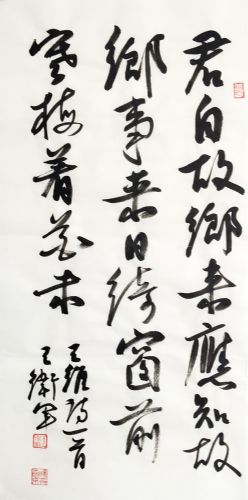 君自故鄉来應知故
鄉事来日綺窗前
寒梅著花未
王維詩一首
王衛軍